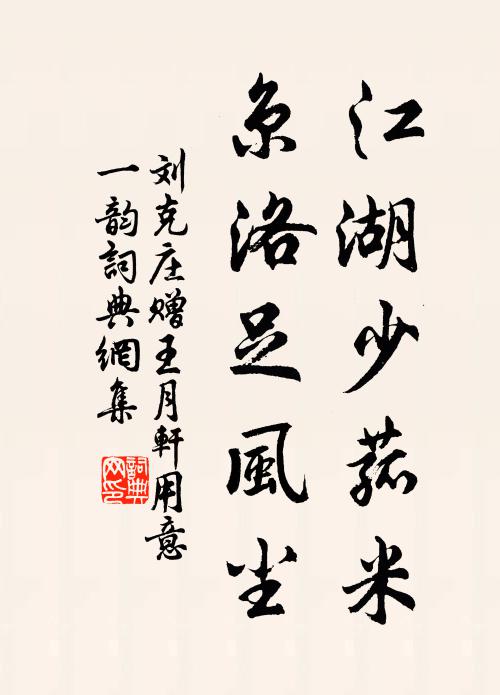 江湖少菰米
京洛足風尘
刘克庄赠王月軒用意
一韵詞典網集
詞典
网印